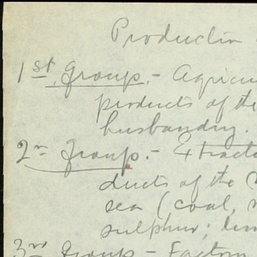 Production
1st Group.- Agricu
products of the
husbandry.
2nd Group.- Extracti
ducts of the
sea (coal,
sulphur; lim
3rd Group - Factory